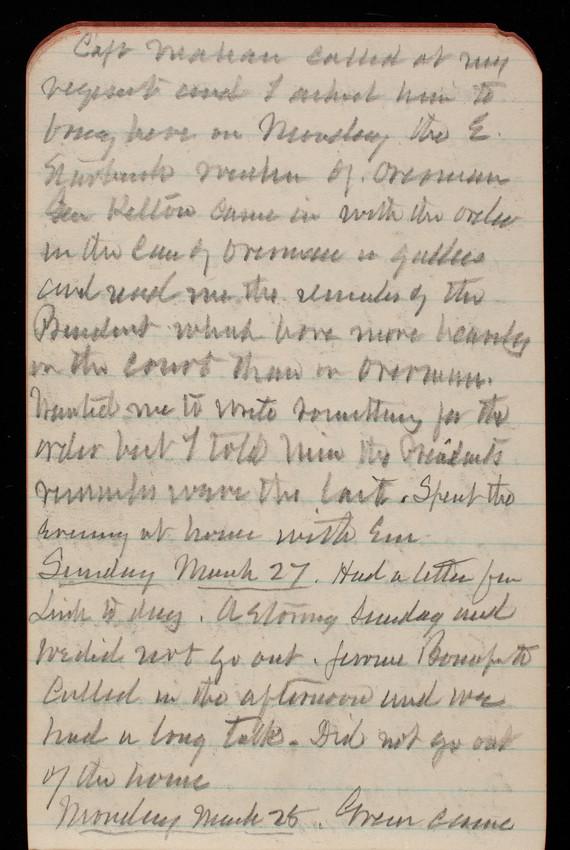 Capt called at my
request and I asked him to
bring here on Monday the E.
of Overman
Gen Kelton came in with the order
in the Case of Overman
and read me the remarks of the
President which bore more heavily
on the court than on Overman.
Wanted me to write something for the
order but I told him the Presidents
remarks were the last. Spent the
evening at home with Em
Sunday March 27. Had a letter from
to day. A stormy Sunday and
We did not go out. Jerome Bonaparte
Called in the afternoon and we
had a long talk. Did not go out
of the house
Monday March 28. Green came